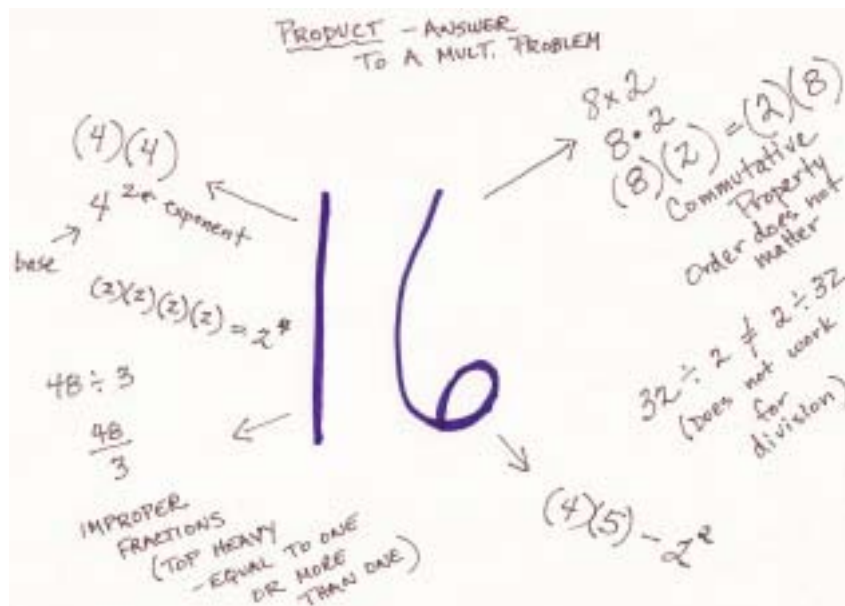 PRODUCT - ANSWER
TO A MULT. PROBLEM
(4)(4)
4² ← exponent
base
(2)(2)(2)(2) = 2⁴
48 ÷ 3
48
3
IMPROPER
FRACTIONS
(TOP HEAVY
- EQUAL TO ONE
OR MORE
THAN ONE)
16
8 x 2
8 • 2
(8)(2) = (2)(8)
Commutative
Property
Order does not
matter
32 ÷ 2 ≠ 2 ÷ 32
(Does not work
for
division)
(4)(5) - 2²